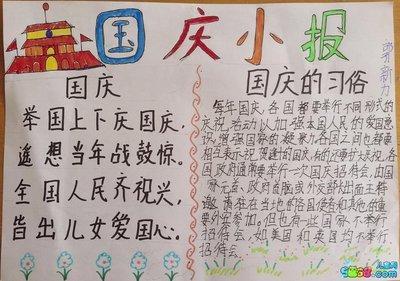 国庆小报
国庆
举国上下庆国庆，
遥想当年战鼓惊。
全国人民齐祝兴，
皆出儿女爱国心。
国庆的习俗
每年国庆，各国都要举行不同形式的
庆祝活动以加强本国人民的爱国意
识，增强国家的凝聚力。各国之间也都要
相互表示祝贺。逢五逢十的国庆，有的还要扩大庆祝，各
国政府通常要举行一次国庆招待会，由国
家元首、政府首脑或外交部长出面主持
邀请驻在当地的各国使者和其他的重
要外宾参加。但也有一些国家不举行
招待会，如美国和英国均不举行
招待会。